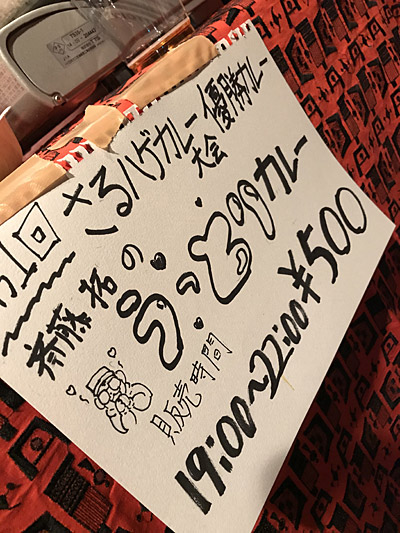 1回 さるハゲカレー大会 優勝カレー
斎藤拓の
うっどぅカレー
¥500
販売時間
19:00〜22:00